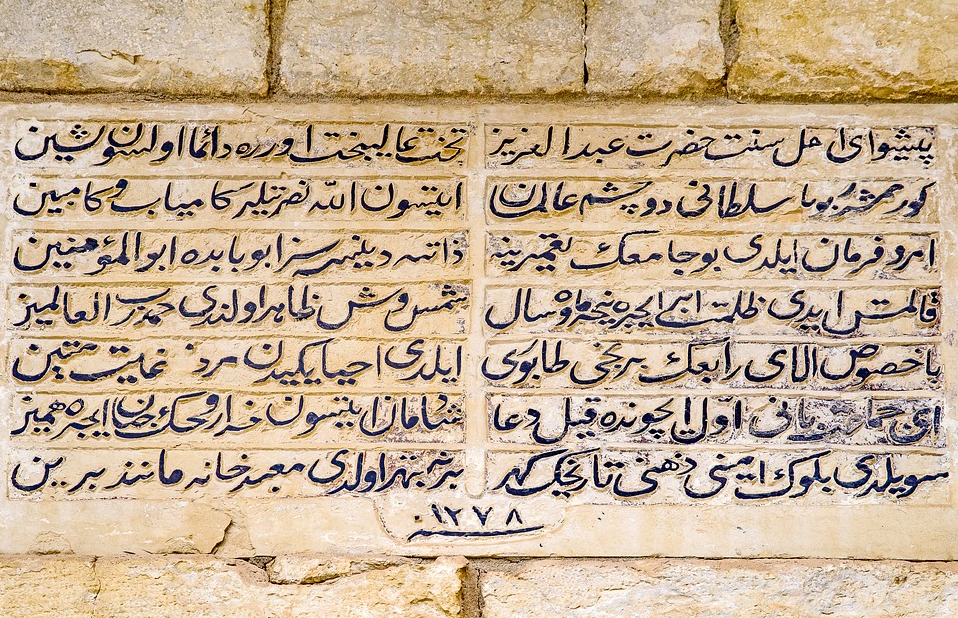 پیشوای اهل سنت حضرت عبد العزیز تخت عالیبخت اوزره دائما اولسون نشین
سلطانی دو چشم عالمان ایتسون الله نصرتیله کامیاب و کامبین
امر و فرمان ایلدی بو جامعك تعمیرینه ذاتنه دینلسه سزا بو بابده ابو المؤمنین
قالمش ایدی ظلمت ایچره نیجه ماه و سال شمس وش ظاهر اولندی حمد رب العالمین
باخصوص الای رابعك برنجی طابوری ایلدی احیا یکیدن غایت متین
ای جماعت بانی اول ایچونده قیل دعا شادمان ایتسون خدا روحك جنان ایچره همین
سویلدی بلوك امینی ذهنی تاریخك کهر اولدی معبد خانه مانند برین
سنه ١٢٧٨